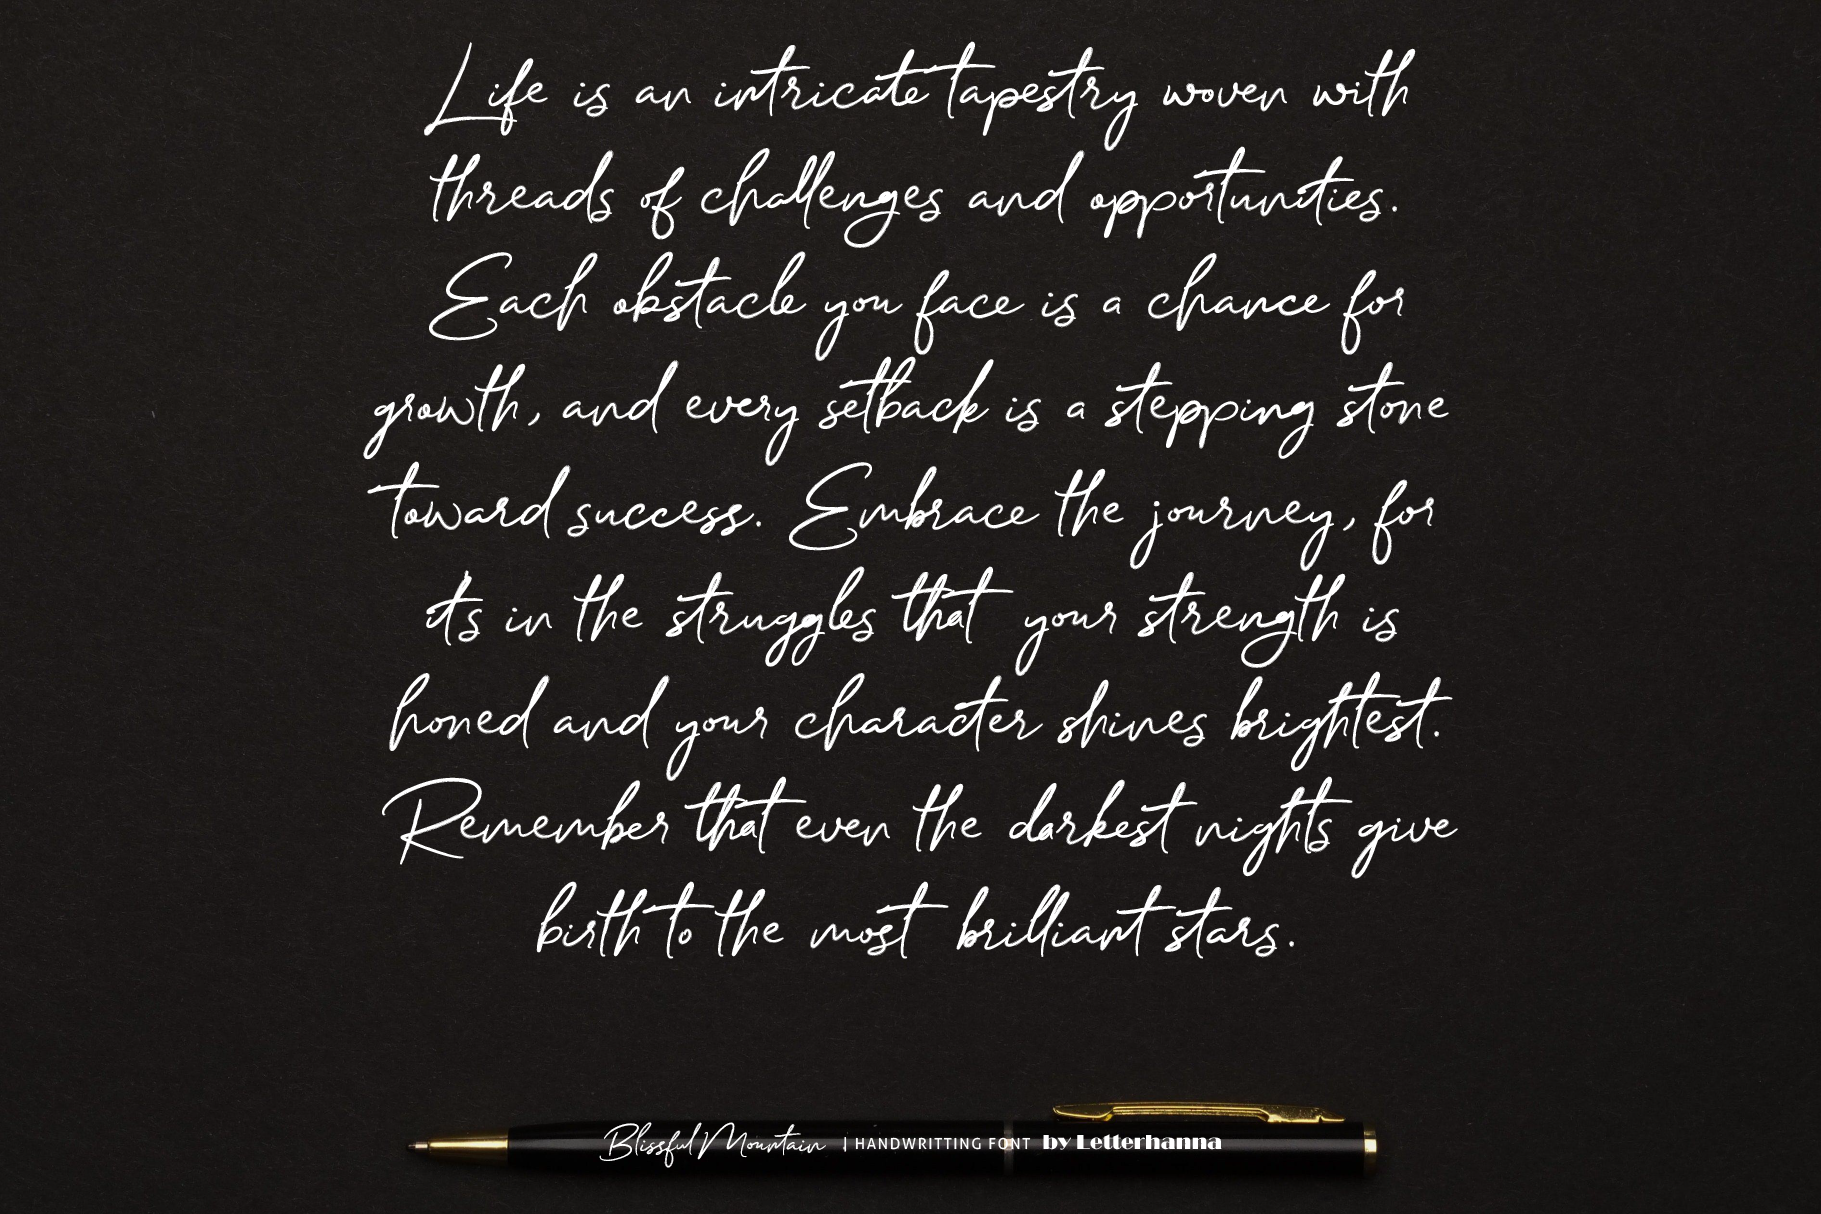 Life is an intricate tapestry woven with
threads of challenges and opportunities.
Each obstacle you face is a chance for
growth, and every setback is a stepping stone
toward success. Embrace the journey, for
its in the struggles that your strength is
honed and your character shines brightest.
Remember that even the darkest nights give
birth to the most brilliant stars.
Blissful Mountain | HANDWRITTING FONT by Letterhanna